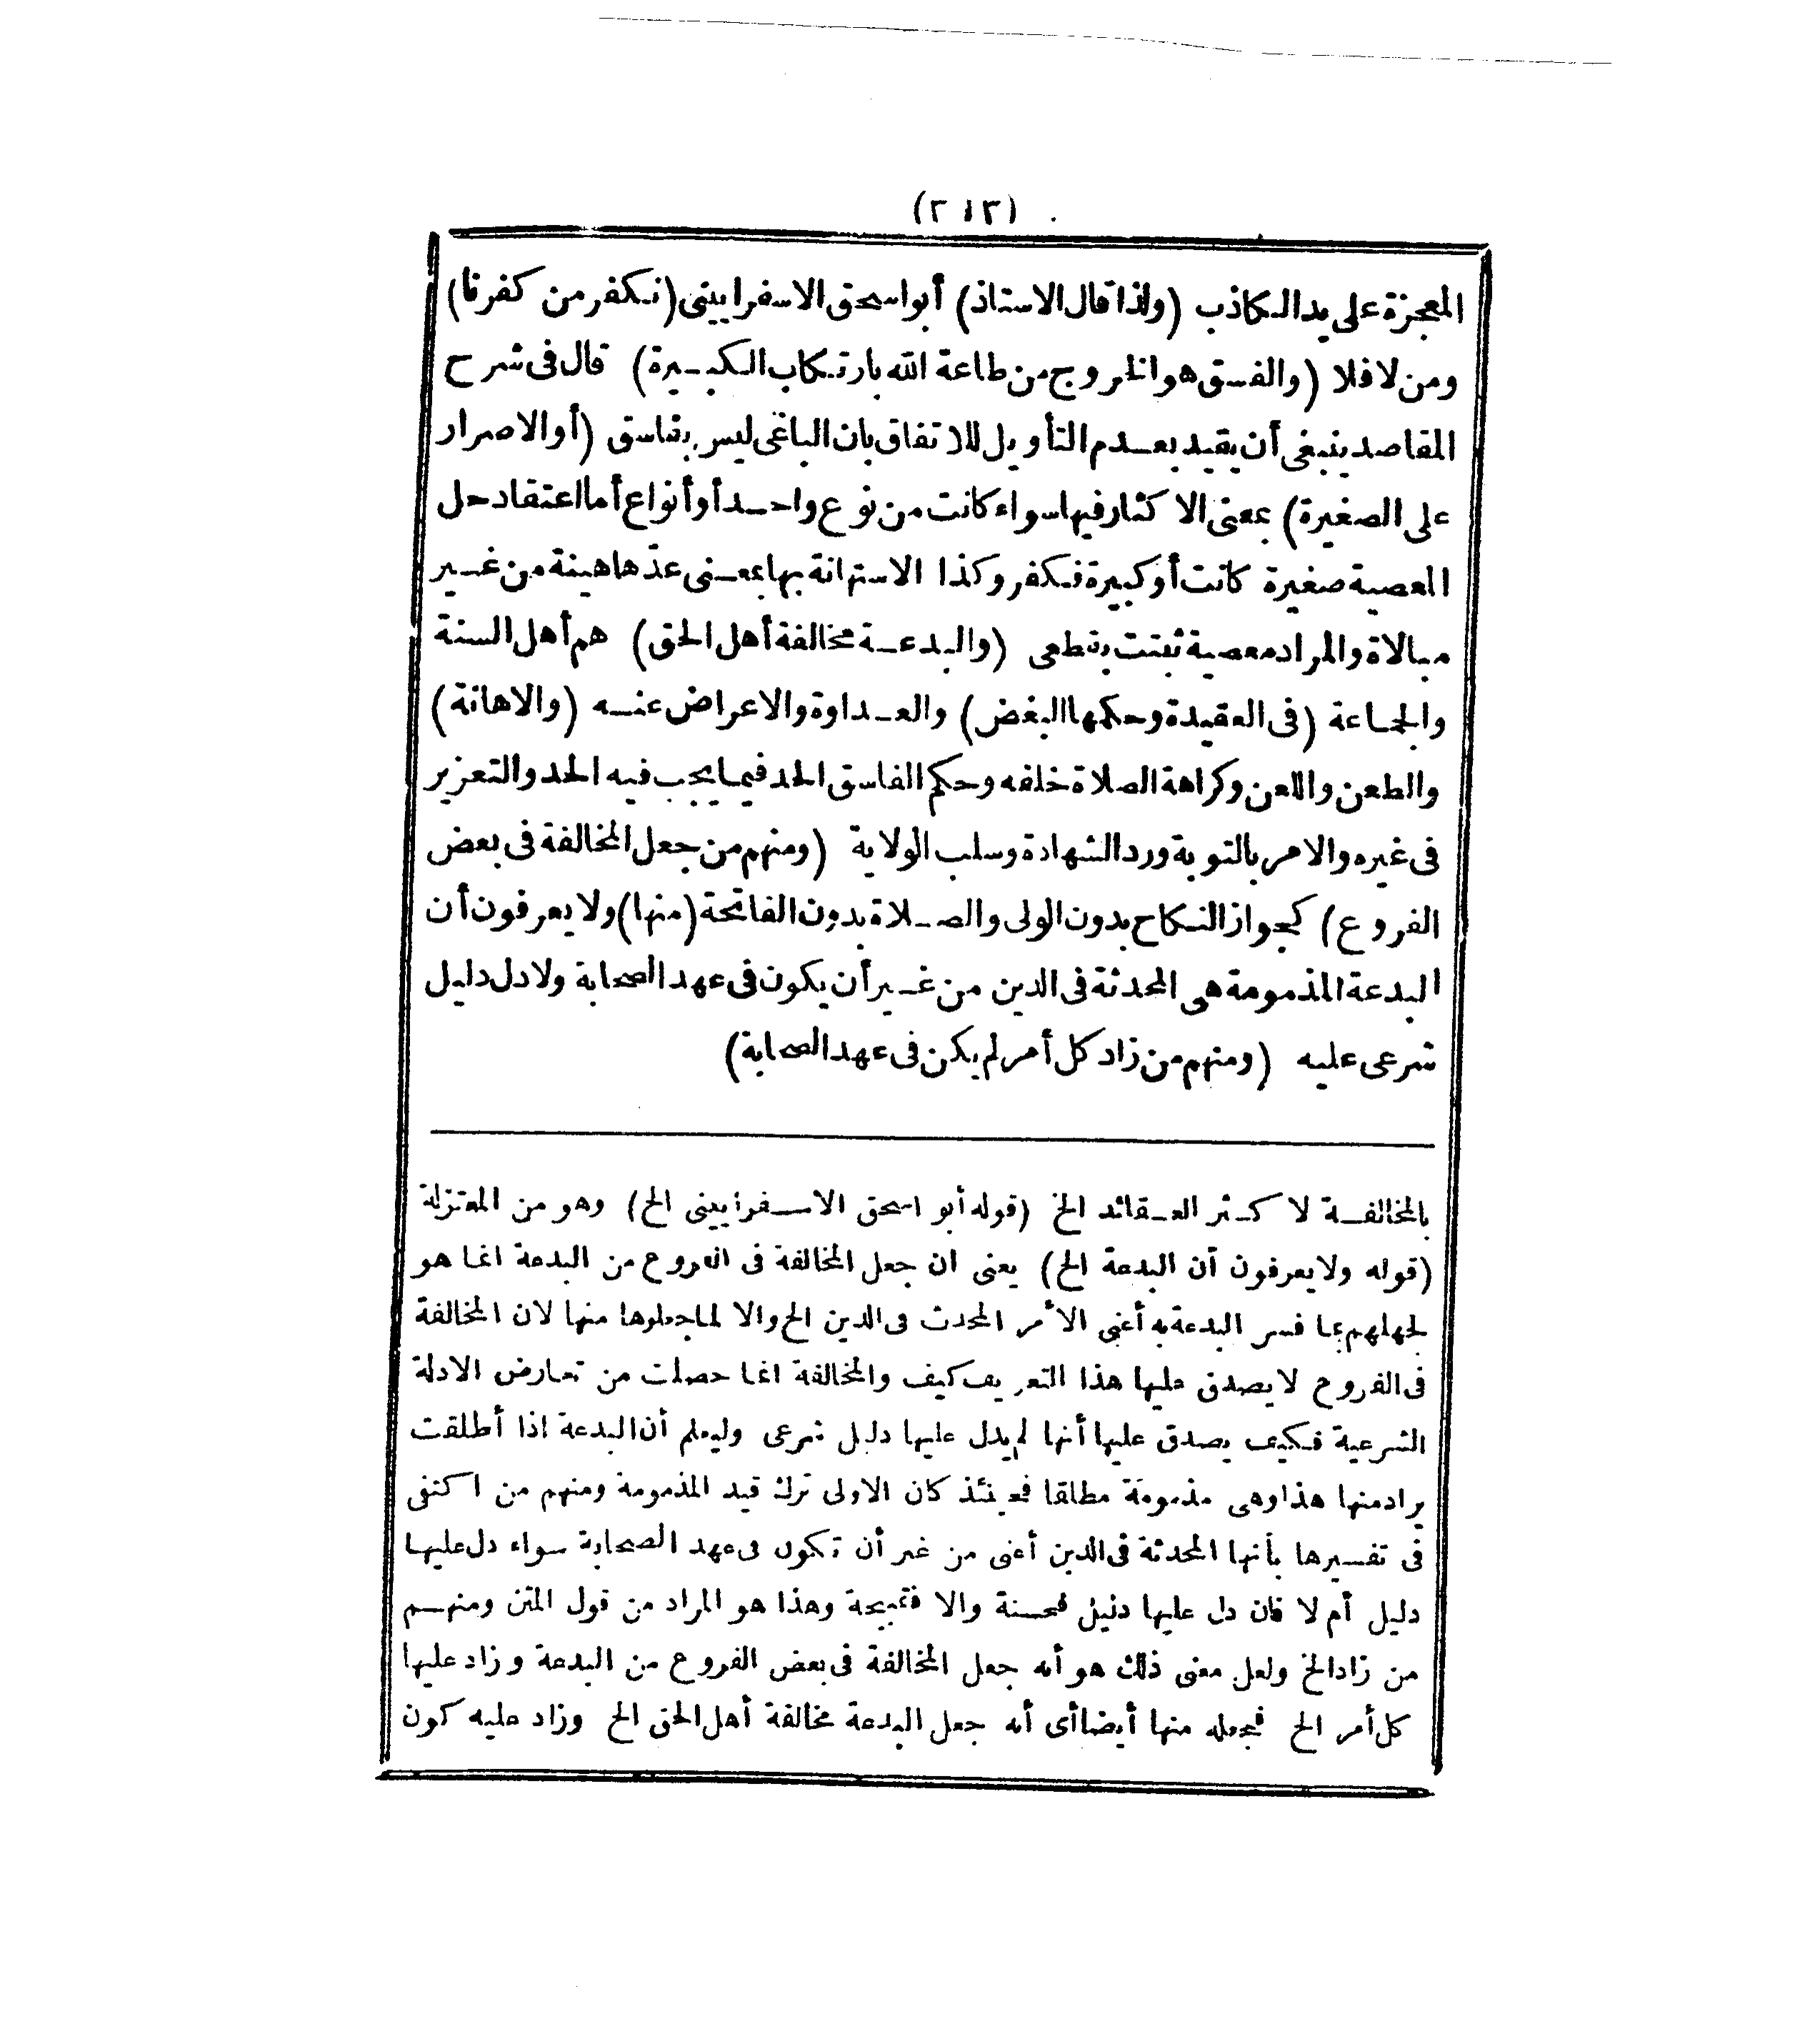 (٢١٣)
المعجزة على يد الكاذب (ولذا قال الاستاذ) أبو اسحق الاسفرايينى (نكفر من كفرنا)
ومن لا فلا (والفسق هو الخروج من طاعة الله بارتكاب الكبيرة) قال فى شرح
المقاصد ينبغى أن يقيد بعدم التأويل للاتفاق بان الباغى ليس بفاسق (أو الاصرار
على الصغيرة) بمعنى الاكثار فيها سواء كانت من نوع واحد أو أنواع أما اعتقاد حل
المعصية صغيرة كانت أو كبيرة فكفر وكذا الاستهانة بها بمعنى عدّها هينة من غير
مبالاة والمراد معصية ثبتت بقطعى (والبدعة مخالفة أهل الحق) هم أهل السنة
والجماعة (فى العقيدة وحكمها البغض) والعداوة والاعراض عنه (والاهانة)
والطعن واللعن وكراهة الصلاة خلفه وحكم الفاسق الحد فيما يجب فيه الحد والتعزير
فى غيره والامر بالتوبة ورد الشهادة وسلب الولاية (ومنهم من جعل المخالفة فى بعض
الفروع) كجواز النكاح بدون الولى والصلاة بدون الفاتحة (منها) ولا يعرفون أن
البدعة المذمومة هى المحدثة فى الدين من غير أن يكون فى عهد الصحابة ولا دل دليل
شرعى عليه (ومنهم من زاد كل أمر لم يكن فى عهد الصحابة)
بالمخالفة لاكثر العقائد الخ (قوله أبو اسحق الاسفرايينى الخ) وهو من المعتزلة
(قوله ولا يعرفون أن البدعة الخ) يعنى ان جعل المخالفة فى الفروع من البدعة انما هو
لجهلهم بما فسر البدعة به أعنى الأمر المحدث فى الدين الخ والا لما جعلوها منها لان المخالفة
فى الفروع لا يصدق عليها هذا التعريف كيف والمخالفة انما حصلت من تعارض الادلة
الشرعية فكيف يصدق عليها أنها لم يدل عليها دليل شرعى وليعلم أن البدعة اذا أطلقت
يراد منها هذا وهى مذمومة مطلقا فحينئذ كان الاولى ترك قيد المذمومة ومنهم من اكتفى
فى تفسيرها بأنها المحدثة فى الدين أعنى من غير أن تكون فى عهد الصحابة سواء دل عليها
دليل أم لا فان دل عليها دليل فحسنة والا فقبيحة وهذا هو المراد من قول المتن ومنهم
من زاد الخ ولعل معنى ذلك هو أنه جعل المخالفة فى بعض الفروع من البدعة وزاد عليها
كل أمر الخ فجعله منها أيضا أى أنه جعل البدعة مخالفة أهل الحق الخ وزاد عليه كون